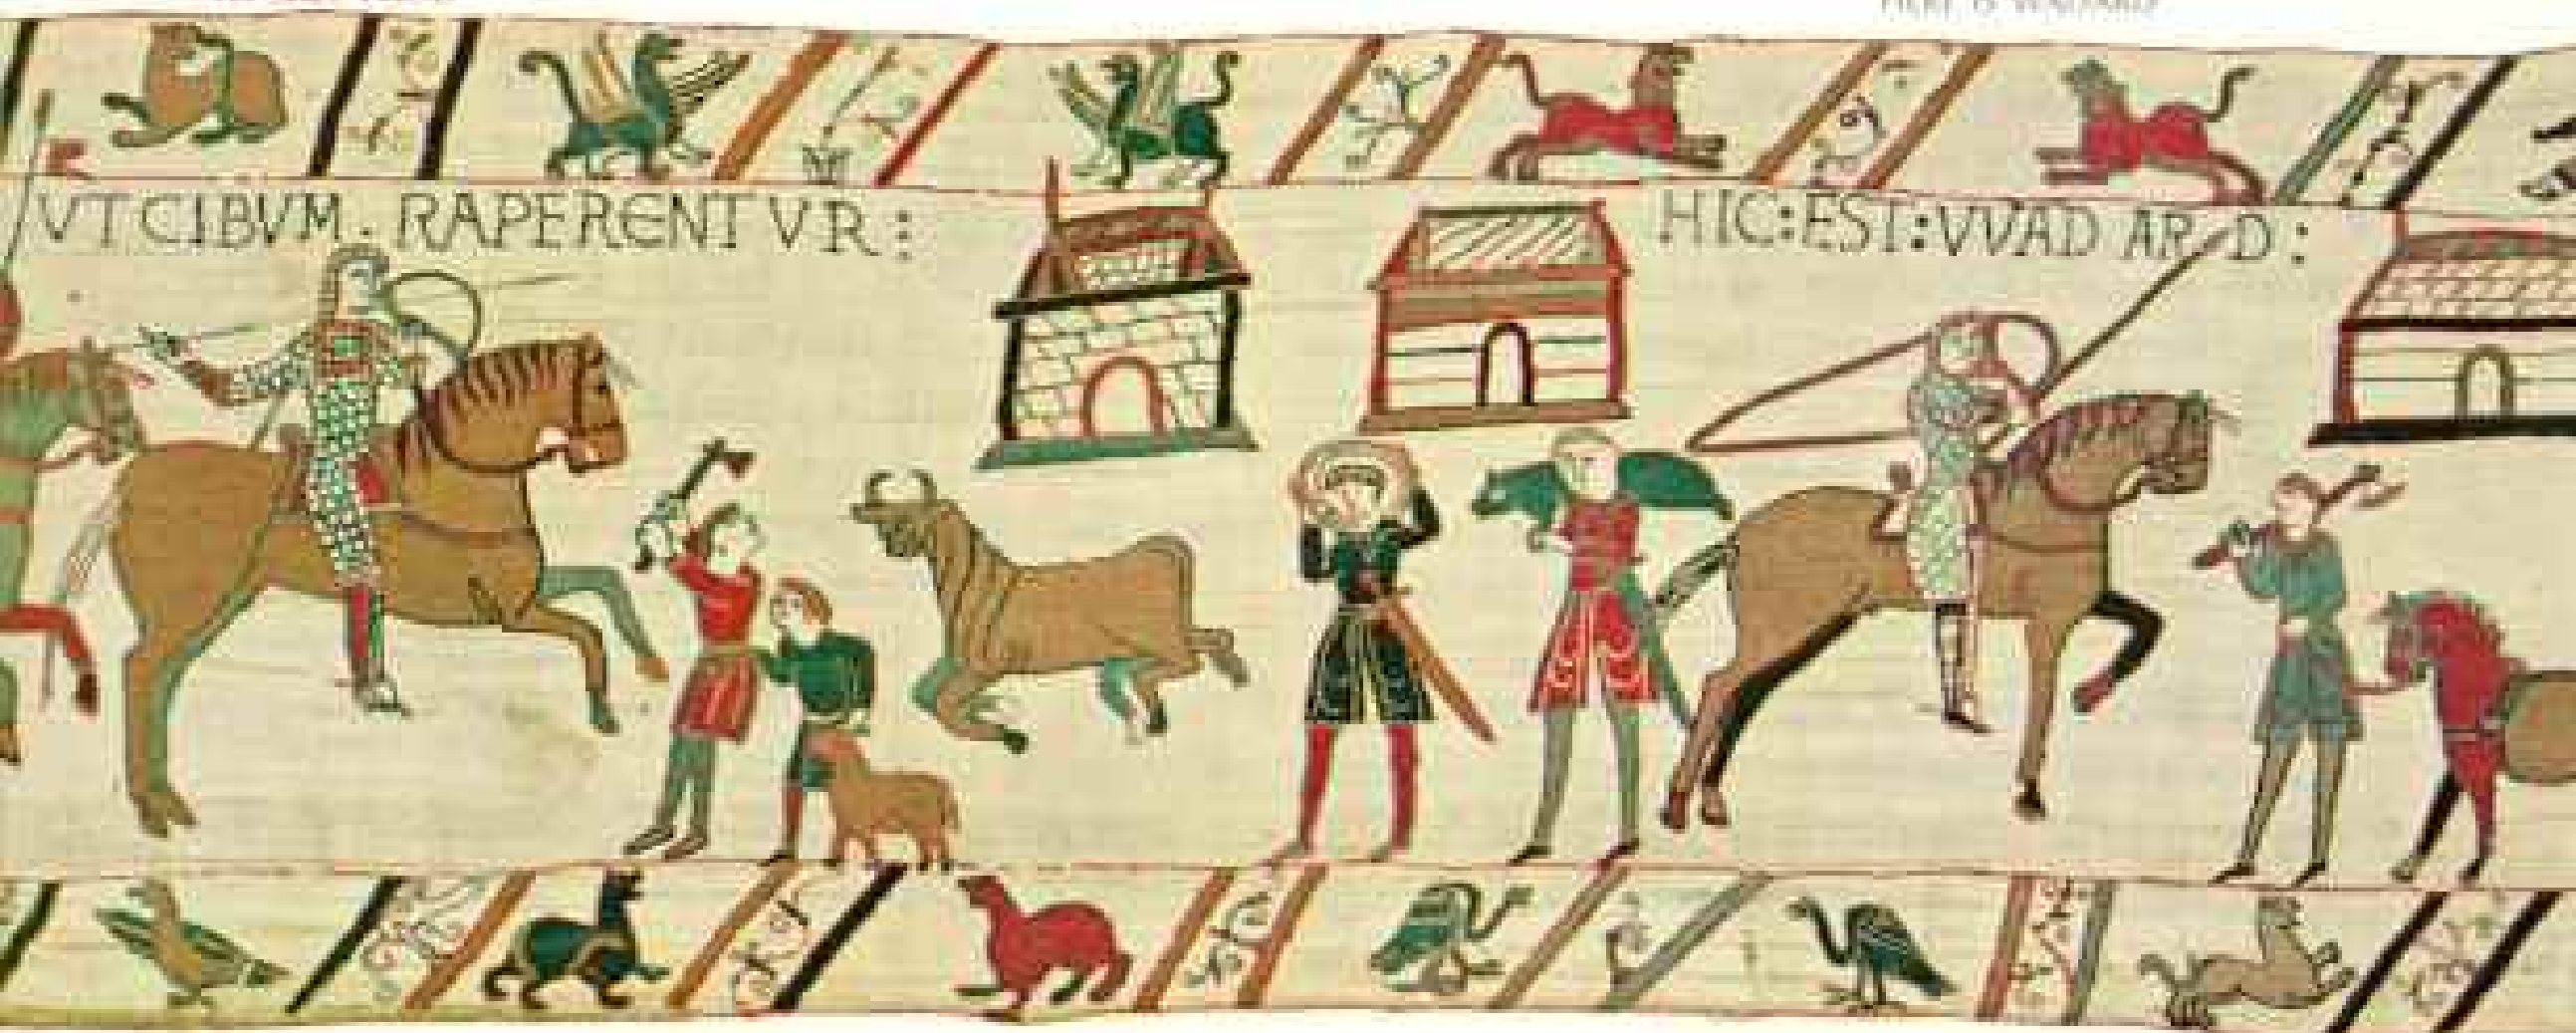 VT CIBVM . RAPERENTVR :
HIC : EST : VVADARD :